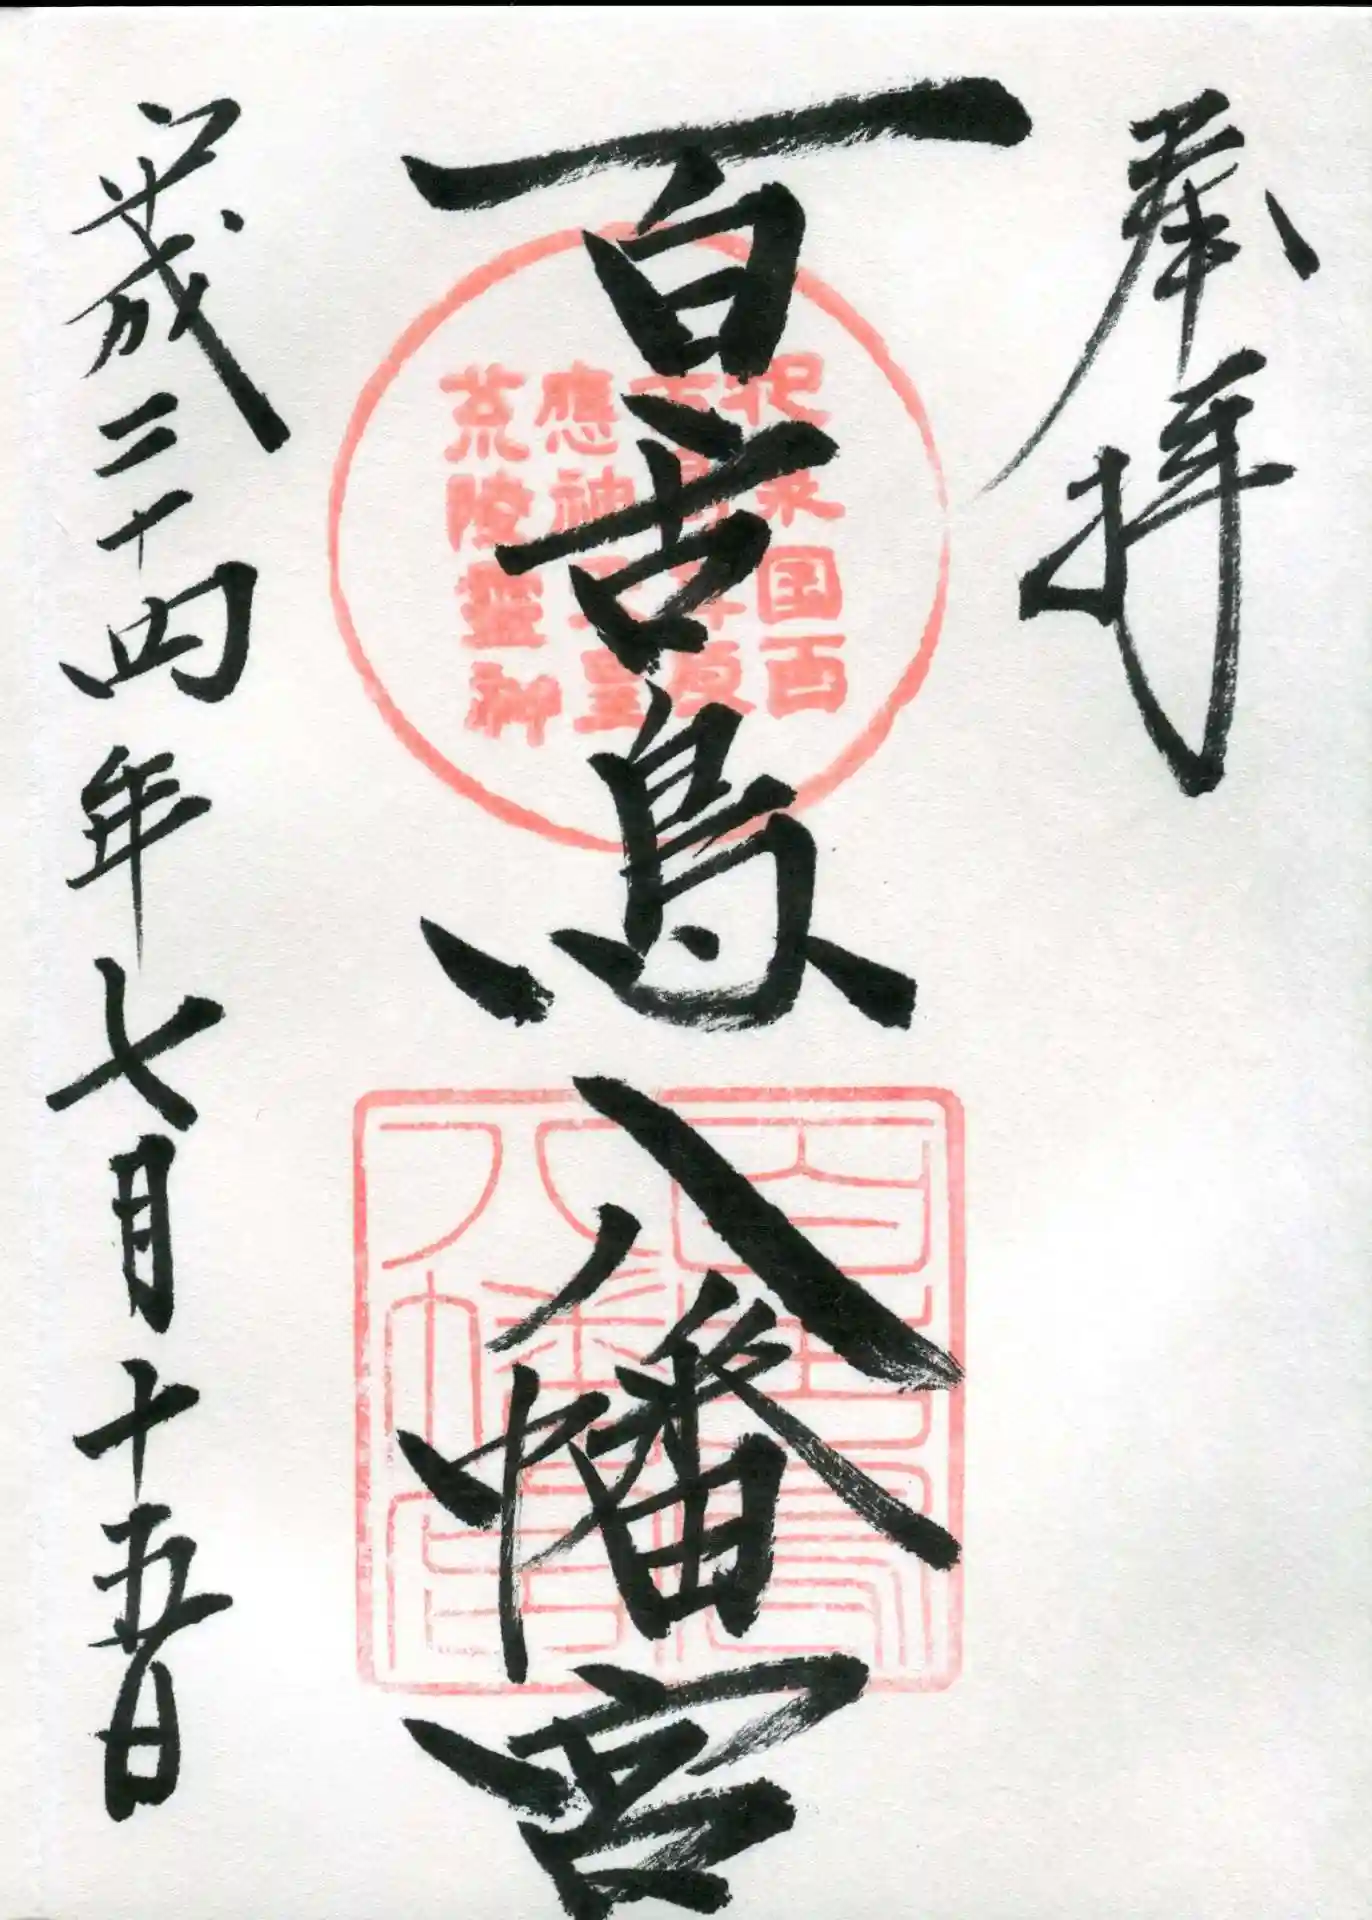 奉拝
百舌鳥八幡宮
和泉国百
舌鳥耳原
應神天皇
荒陵霊
平成二十四年七月十五日